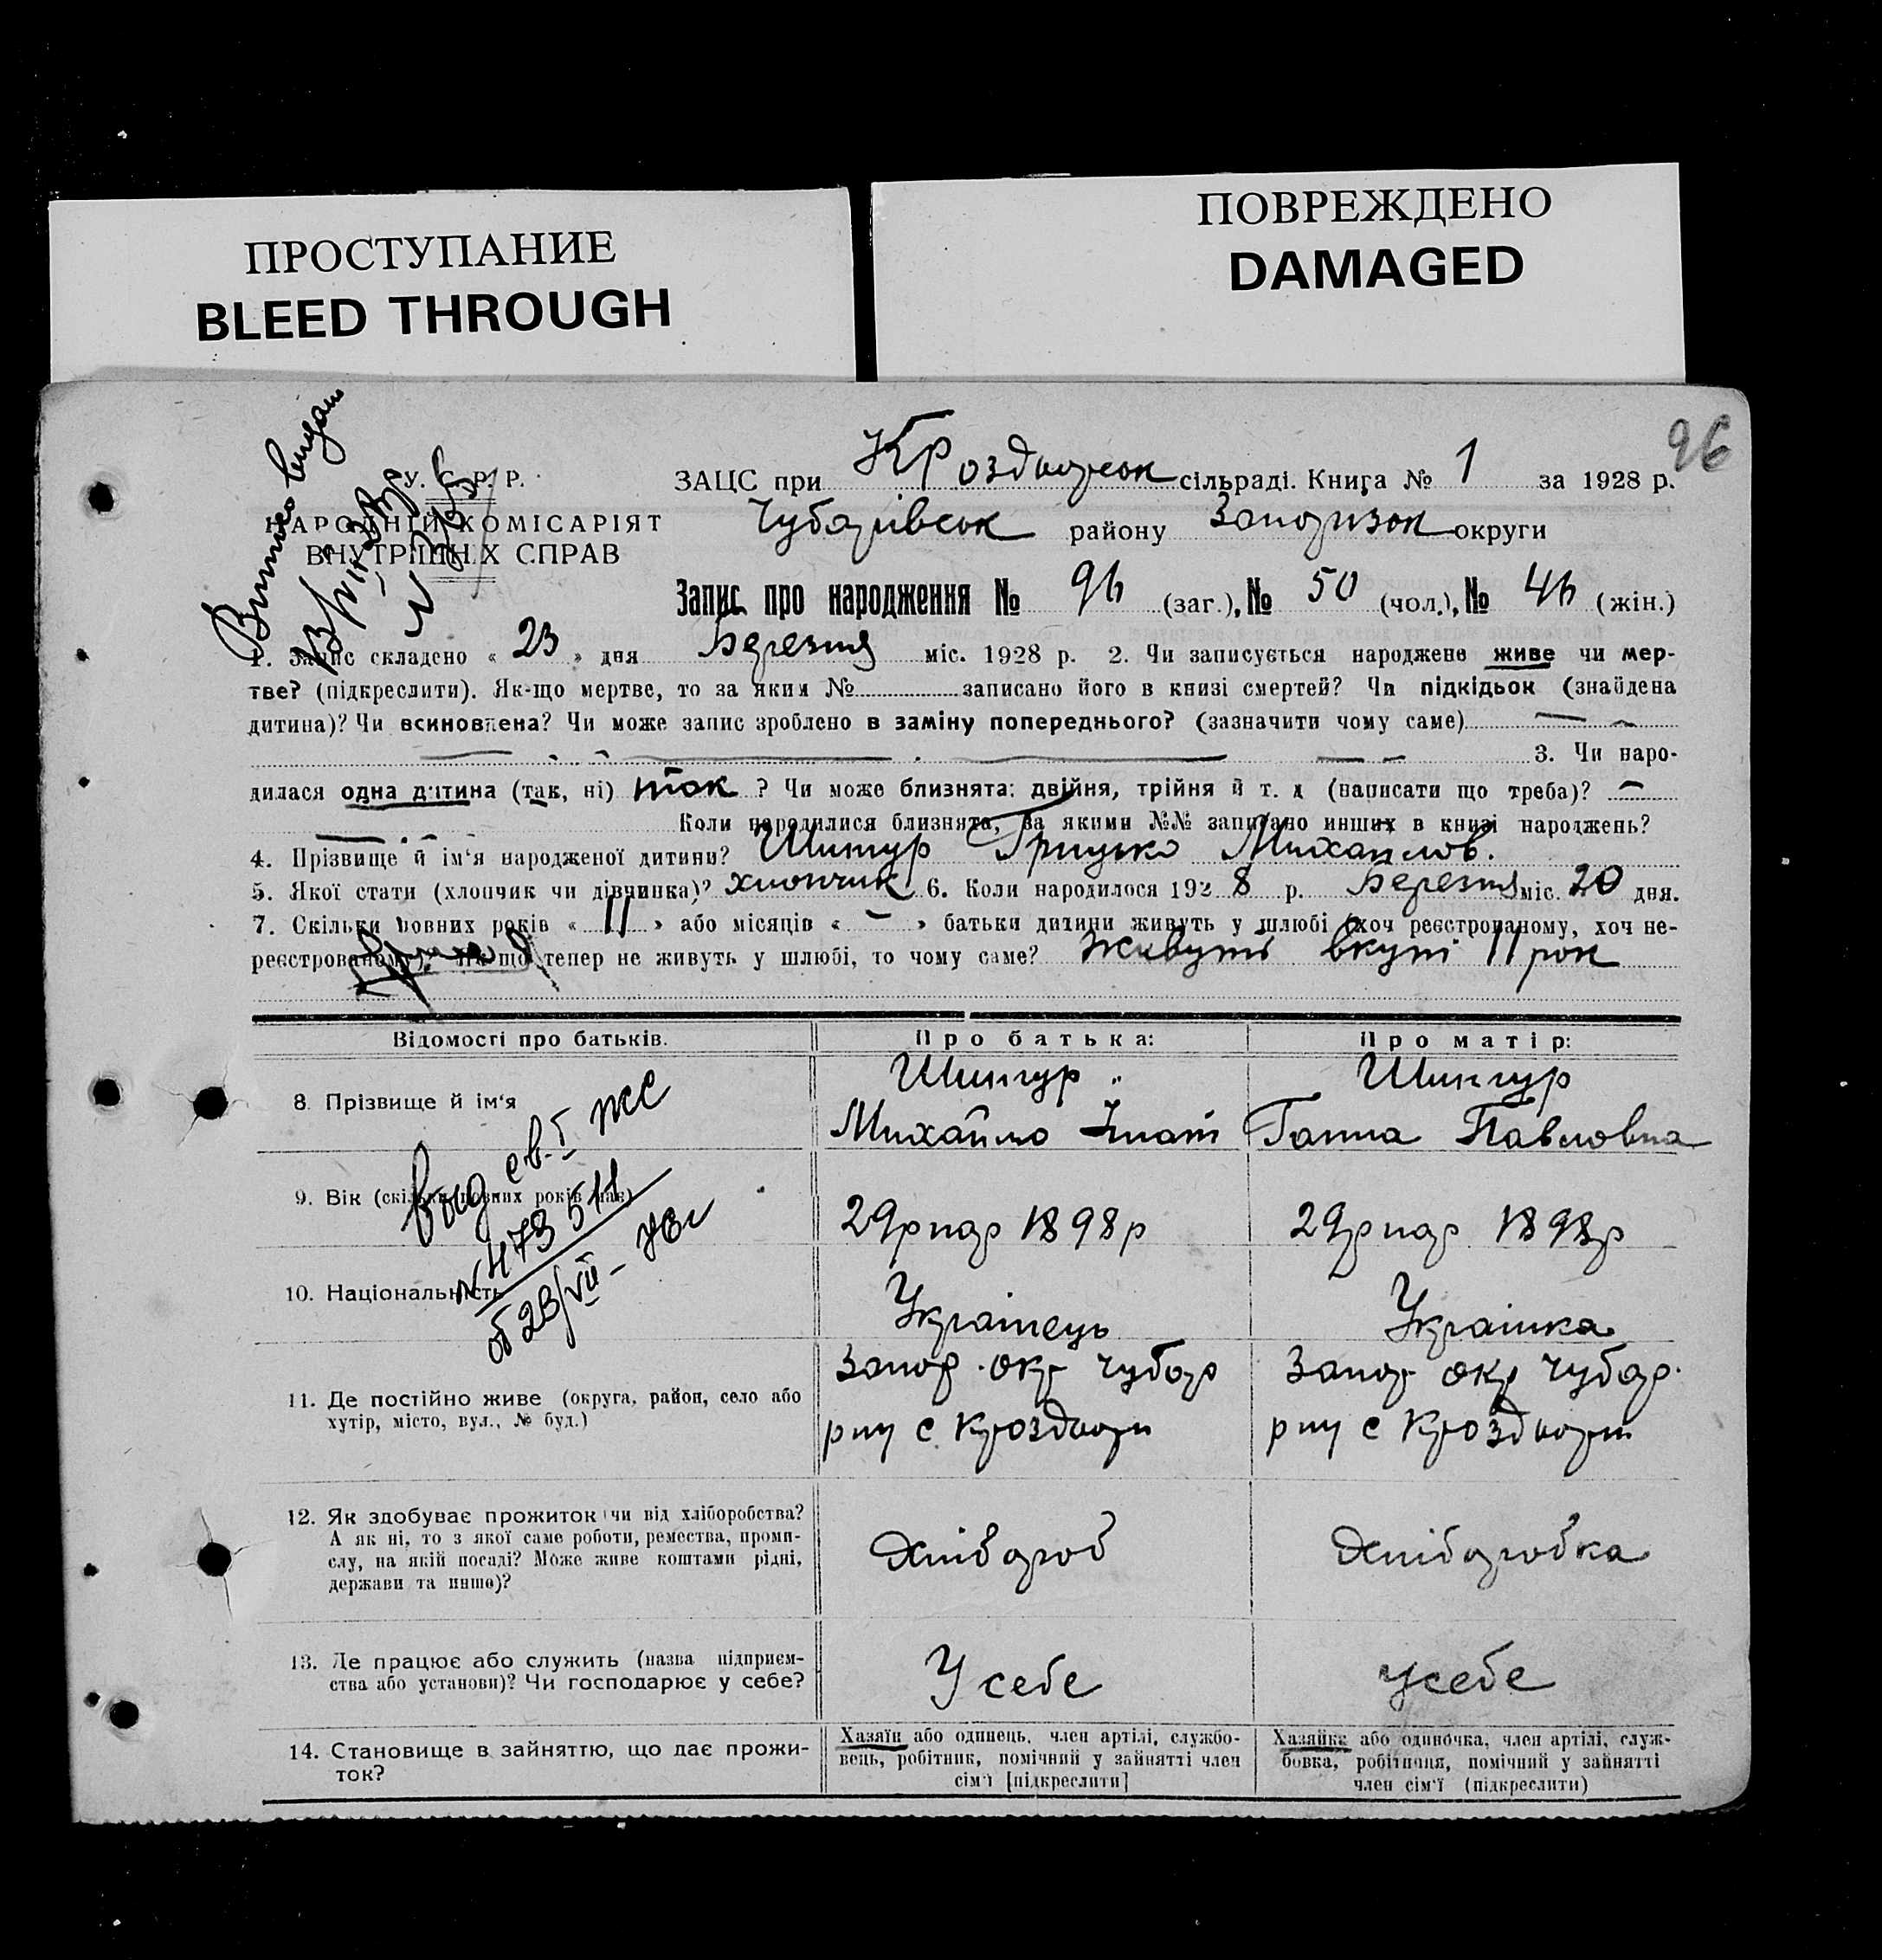 ПРОСТУПАНИЕ
BLEED THROUGH
ПОВРЕЖДЕНО
DAMAGED
96
У. С. Р. Р.
НАРОДНІЙ КОМІСАРІЯТ
ВНУТРІШНІХ СПРАВ
ЗАЦС при сільраді. Книга № 1 за 1928 р.
Чубарівськ району Запоризок округи
Запис про народження № 96 (заг.), № 50 (чол.), № 46 (жін.)
1. Запис складено « 23 » дня Березня міс. 1928 р. 2. Чи записується народжене живе чи мер-
тве? (підкреслити). Як-що мертве, то за яким № записано його в книзі смертей? Чи підкідьок (знайдена
дитина)? Чи всиновлена? Чи може запис зроблено в заміну попереднього? (зазначити чому саме)
3. Чи наро-
дилася одна дитина (так, ні) так ? Чи може близнята: двійня, трійня й т. д (написати що треба)?
Коли народилися близнята, за якими №№ записано инших в книзі народжень?
4. Прізвище й ім'я народженої дитини? Шингур Грицько Михайлов.
5. Якої стати (хлопчик чи дівчинка)? хлопчик 6. Коли народилося 192 8 р. Березня міс. 20 дня.
7. Скільки повних років « 11 » або місяців « – » батьки дитини живуть у шлюбі (хоч реєстрованому, хоч не-
реєстрованому)? Як що тепер не живуть у шлюбі, то чому саме? Живуть вкупі 11 рок
Відомості про батьків.
Про батька:
Про матір:
8. Прізвище й ім'я
Шингур
Михайло Гнат
Шингур
Ганна Павловна
выд св. І же
N 473511
от 23/VII-
9. Вік (скільки повних років має)
29 р нар 1898 р
29 р нар 1898 р
10. Національність
Українець
Українка
11. Де постійно живе (округа, район, село або
хутір, місто, вул., № буд.)
Запор окр Чубар
рну с Кроздори
Запор окр Чубар.
рну с Кроздори
12. Як здобуває прожиток чи від хліборобства?
А як ні, то з якої саме роботи, ремества, проми-
слу, на якій посаді? Може живе коштами рідні,
держави та инше)?
Хлібороб
Хліборобка
13. Де працює або служить (назва підприєм-
ства або установи)? Чи господарює у себе?
У себе
у себе
14. Становище в зайняттю, що дає прожи-
ток?
Хазяїн або одинець, член артілі, службо-
вець, робітник, помічний у зайнятті член
сім'ї [підкреслити]
Хазяйка або одиночка, член артілі, служ-
бовка, робітниця, помічний у зайнятті
член сім'ї (підкреслити)